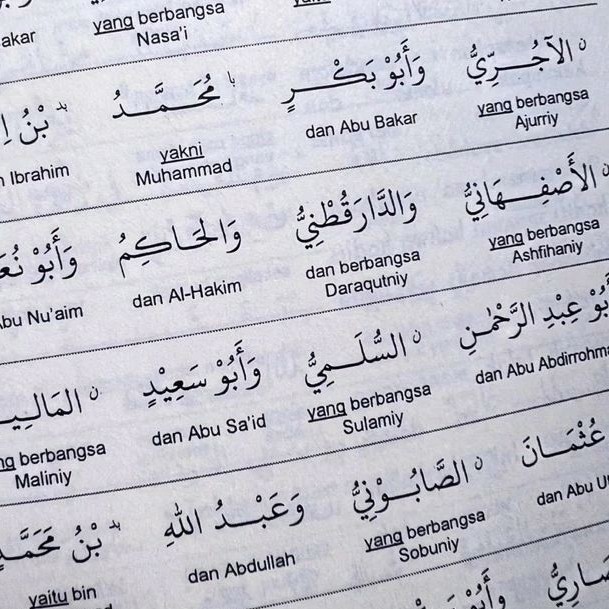 akar yang berbangsa
Nasa'i
الآجُرِّيُّ وَأَبُوْ بَكْرٍ مُحَمَّدُ بْنُ
yang berbangsa dan Abu Bakar yakni Ibrahim
Ajurriy Muhammad
الأَصْفِهَانِيُّ وَالدَّارَقُطْنِيُّ وَالْحَاكِمُ وَأَبُوْ
yang berbangsa dan berbangsa dan Al-Hakim Abu Nu'aim
Ashfihaniy Daraqutniy
عَبْدِ الرَّحْمٰنِ السُّلَمِيُّ وَأَبُوْ سَعِيْدٍ
dan Abu Abdirrohm yang berbangsa dan Abu Sa'id berbangsa
Sulamiy Maliniy
عُثْمَانَ الصَّابُوْنِيُّ وَعَبْدُ اللهِ بْنُ
dan Abu yang berbangsa dan Abdullah yaitu bin
Sobuniy